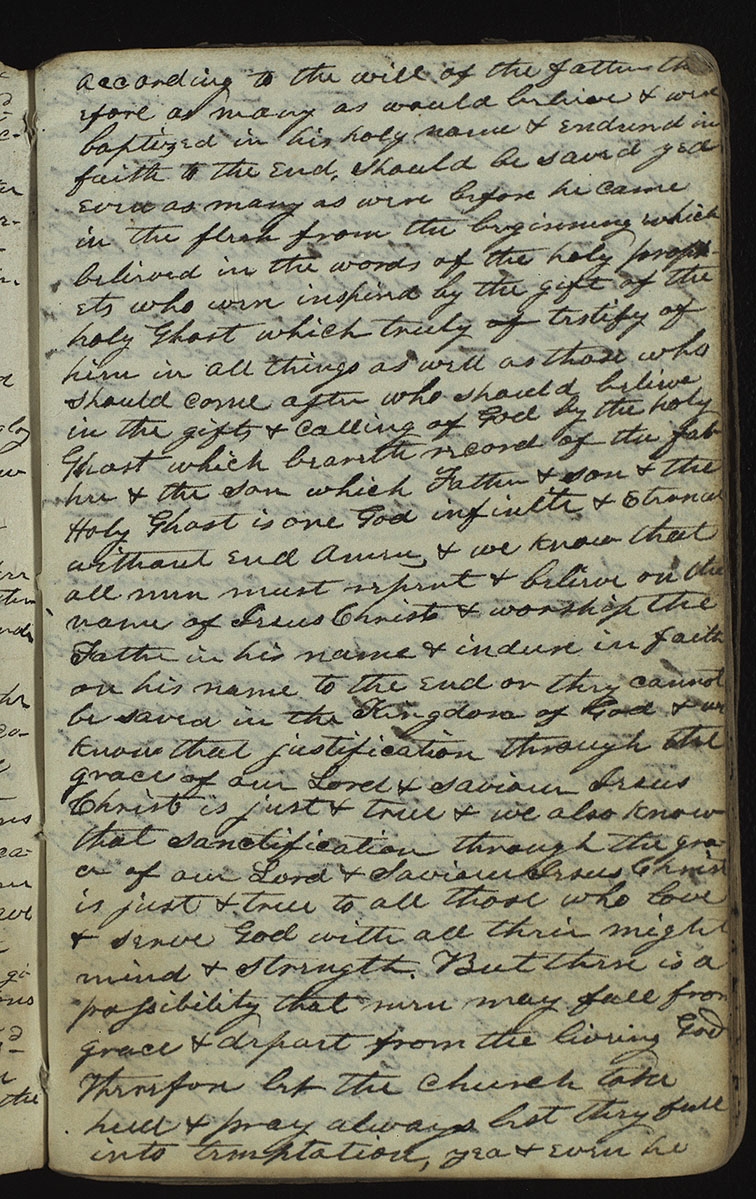 according to the will of the father th
efore as many as would believe & were
baptized in his holy name & endured in
faith to the End, should be saved yed
Even as many as were before he came
in the flesh from the beginning which
believed in the words of the holy proph-
ets who were inspired by the gift of the
holy Ghost which truly of testify of
him in all things as well as those who
should come after who should believe
in the gifts & Calling of God by the holy
Ghost which beareth record of the fat
her & the son which Father & son & the
Holy Ghost is one God infinite & Eternal
without End Amen & we know that
all men must repent & believe on the
name of Jesus Christ & worship the
Father in his name & indure in faith
on his name to the End or they cannot
be saved in the Kingdom of God & we
know that justification through the
grace of our Lord & Saviour Jesus
Christ is just & true & we also know
that sanctification through the gra
ce of our Lord & Saviour Jesus Christ
is just & true to all those who love
& serve God with all their might
mind & Strength. But there is a
possibility that men may fall from
grace & depart from the living God
Therefore let the church take
heed & pray always lest they fall
into temptation, yea & even he